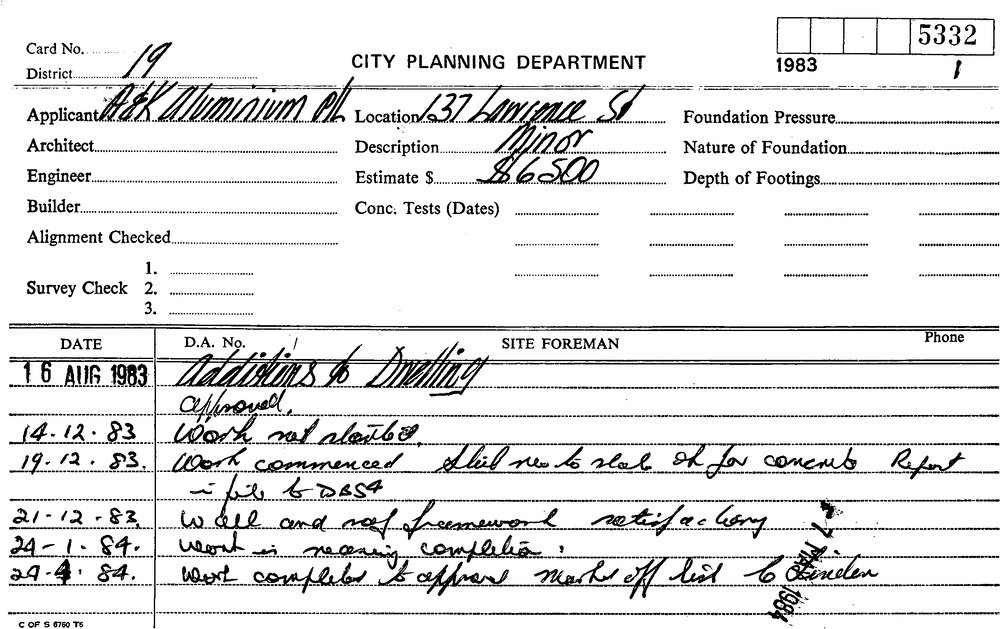 5332
Card No.
19
CITY PLANNING DEPARTMENT
1983 1
District
Applicant A&K Aluminium P/L Location 137 Lawrence St Foundation Pressure
Architect Description Minor Nature of Foundation
Engineer Estimate $ $6500 Depth of Footings
Builder Conc. Tests (Dates)
Alignment Checked
1.
Survey Check 2.
3.
DATE D.A. No. / SITE FOREMAN Phone
16 AUG 1983 Additions to Dwelling
approved.
14.12.83 Work not started.
19.12.83. Work commenced Steel to slab ok for concrete Report
in file to DBS4
21-12-83. Wall and roof framework satisfactory
24-1.84. Work is nearing completion.
24-4.84. Work completed to approval marked off list
1984
C OF S 6760 T6